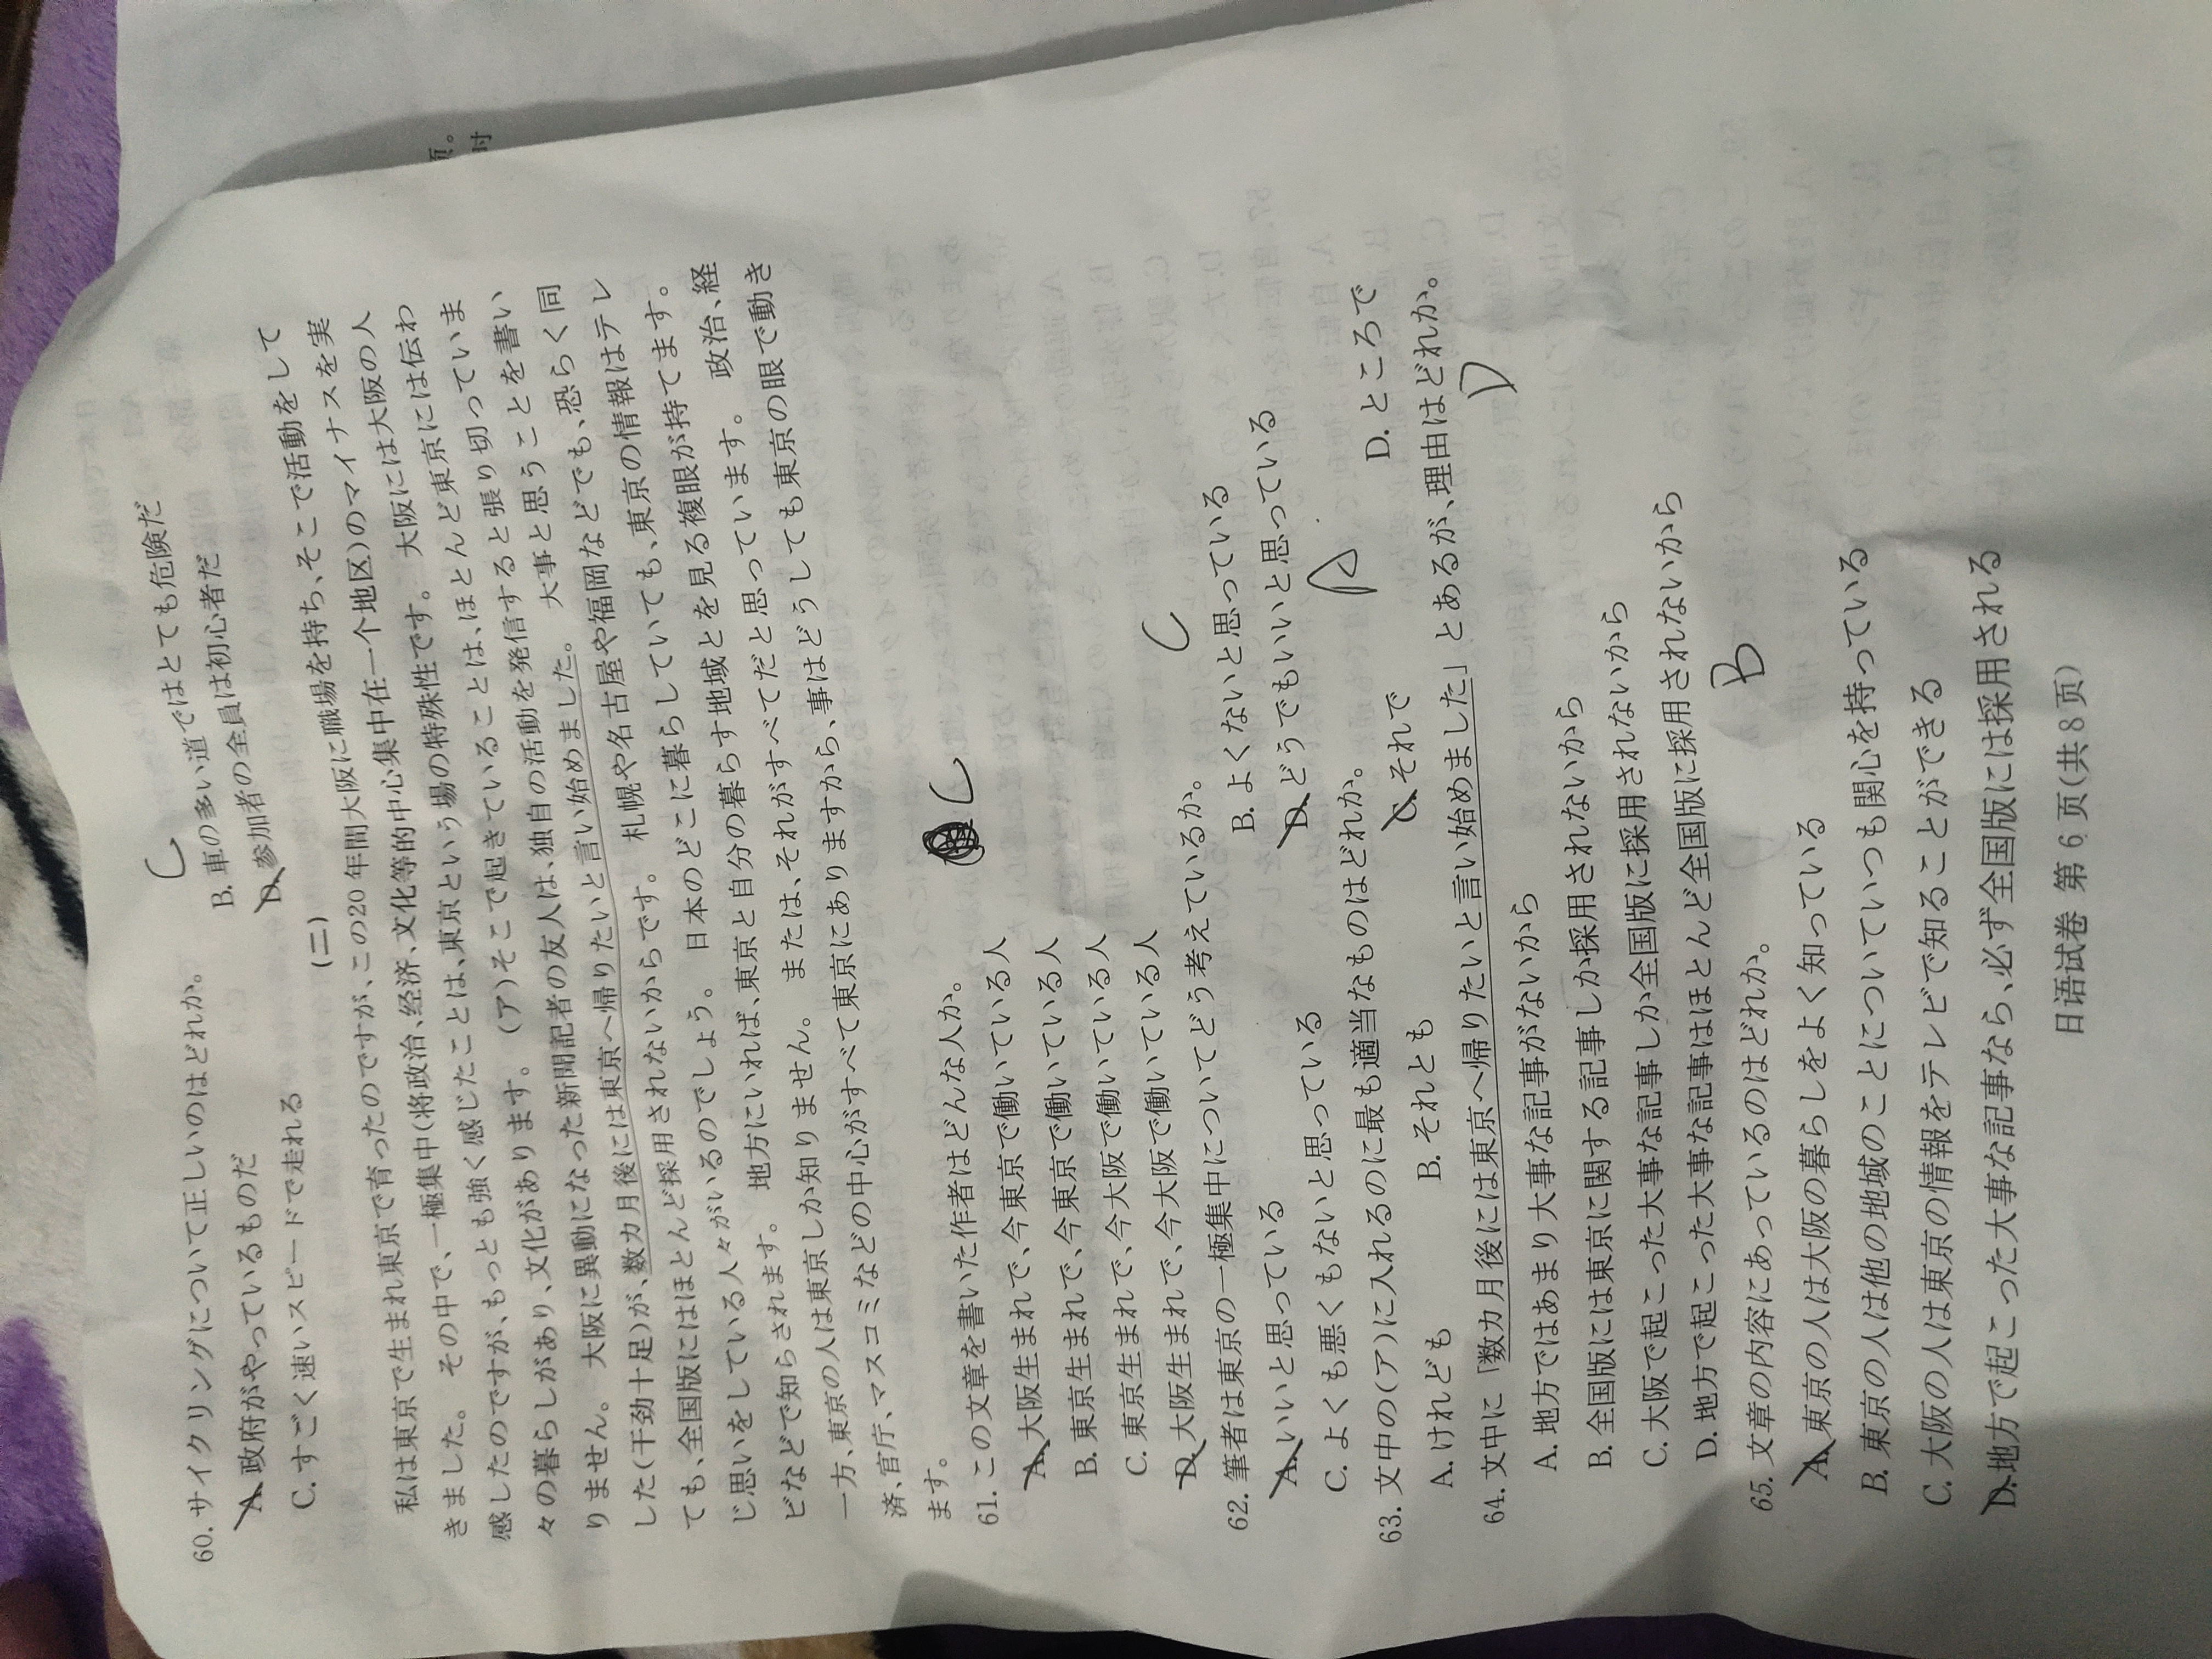 页。
时
60. サイクリングについて正しいのはどれか。
C
A. 政府がやっているものだ
B. 車の多い道ではとても危険だ
C. すごく速いスピードで走れる
D. 参加者の全員は初心者だ
(二)
私は東京で生まれ東京で育ったのですが、この20年間大阪に職場を持ち、そこで活動をして
きました。その中で、一極集中(将政治、经济、文化等的中心集中在一个地区)のマイナスを実
感したのですが、もっとも強く感じたことは、東京という場の特殊性です。大阪には大阪の人
々の暮らしがあり、文化があります。(ア)そこで起きていることは、ほとんど東京には伝わ
りません。大阪に異動になった新聞記者の友人は、独自の活動を発信すると張り切っていま
した(干劲十足)が、数カ月後には東京へ帰りたいと言い始めました。大事と思うことを書い
ても、全国版にはほとんど採用されないからです。札幌や名古屋や福岡などでも、恐らく同
じ思いをしている人々がいるのでしょう。日本のどこに暮らしていても、東京の情報はテレ
ビなどで知らされます。地方にいれば、東京と自分の暮らす地域とを見る複眼が持てます。
一方、東京の人は東京しか知りません。または、それがすべてだと思っています。政治、経
済、官庁、マスコミなどの中心がすべて東京にありますから、事はどうしても東京の眼で動き
ます。
61. この文章を書いた作者はどんな人か。
C
A. 大阪生まれで、今東京で働いている人
B. 東京生まれで、今東京で働いている人
C. 東京生まれで、今大阪で働いている人
D. 大阪生まれで、今大阪で働いている人
62. 筆者は東京の一極集中についてどう考えているか。
C
A. いいと思っている
B. よくないと思っている
C. よくも悪くもないと思っている
D. どうでもいいと思っている
63. 文中の(ア)に入れるのに最も適当なものはどれか。
A
A. けれども
B. それとも
C. それで
D. ところで
64. 文中に「数カ月後には東京へ帰りたいと言い始めました」とあるが、理由はどれか。
D
A. 地方ではあまり大事な記事がないから
B. 全国版には東京に関する記事しか採用されないから
C. 大阪で起こった大事な記事しか全国版に採用されないから
D. 地方で起こった大事な記事はほとんど全国版に採用されないから
65. 文章の内容にあっているのはどれか。
B
A. 東京の人は大阪の暮らしをよく知っている
B. 東京の人は他の地域のことについていつも関心を持っている
C. 大阪の人は東京の情報をテレビで知ることができる
D. 地方で起こった大事な記事なら、必ず全国版には採用される
日语试卷 第 6 页(共 8 页)